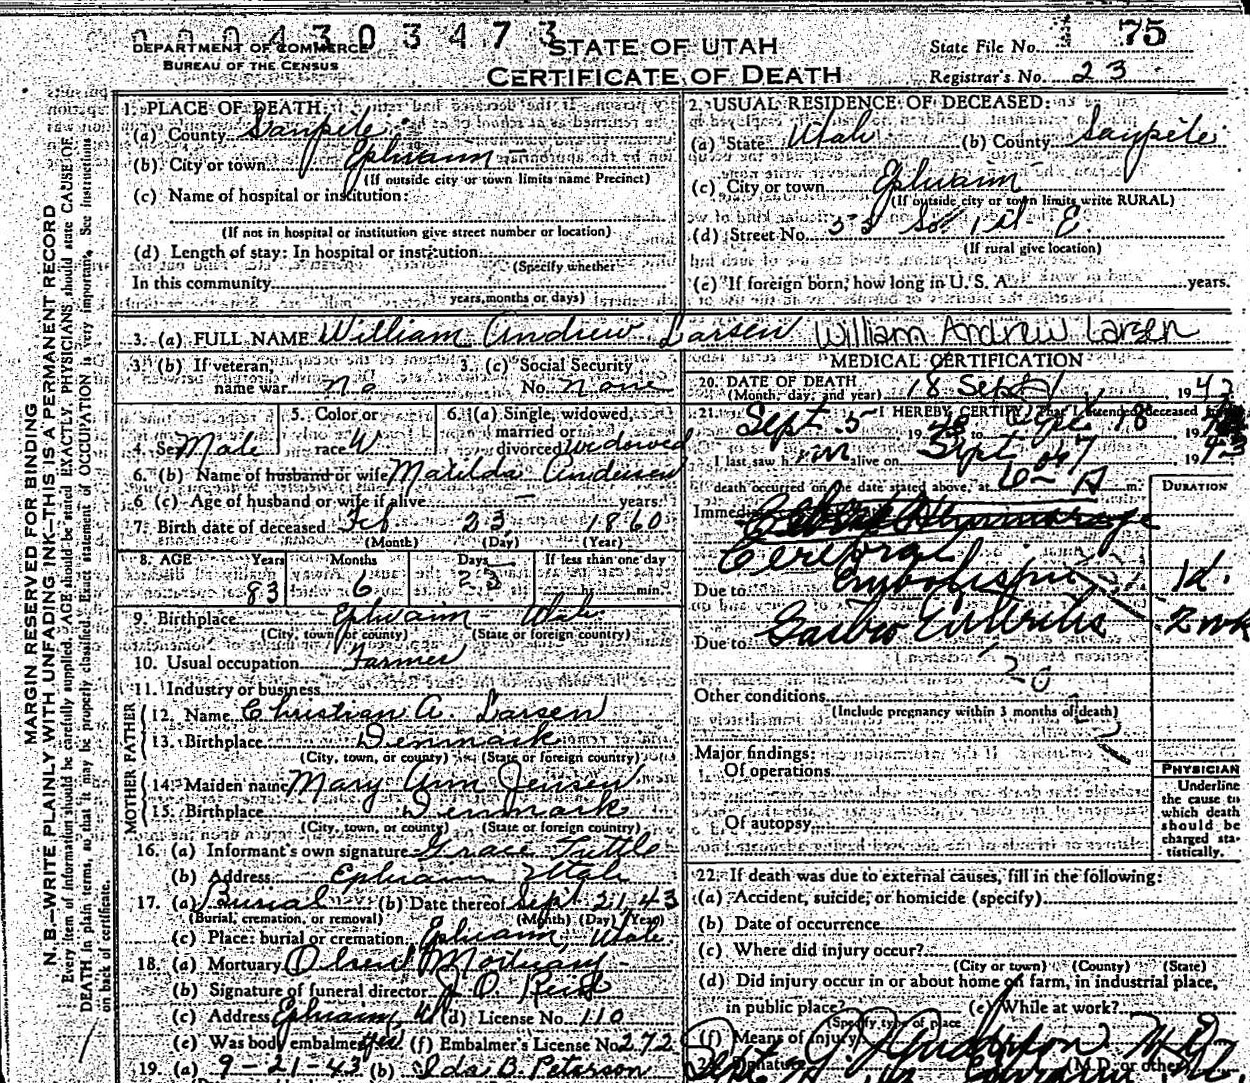 0004303473
DEPARTMENT OF COMMERCE
BUREAU OF THE CENSUS
STATE OF UTAH
CERTIFICATE OF DEATH
State File No. 75
Registrar's No. 23
MARGIN RESERVED FOR BINDING
N. B.—WRITE PLAINLY WITH UNFADING INK—THIS IS A PERMANENT RECORD
Every item of information should be carefully supplied. AGE should be stated EXACTLY. PHYSICIANS should state CAUSE OF
DEATH in plain terms, so that it may be properly classified. Exact statement of OCCUPATION is very important. See instructions
on back of certificate.
1. PLACE OF DEATH:
(a) County Sanpete
(b) City or town Ephraim
(If outside city or town limits name Precinct)
(c) Name of hospital or institution:
(If not in hospital or institution give street number or location)
(d) Length of stay: In hospital or institution
(Specify whether
In this community
years, months or days)
2. USUAL RESIDENCE OF DECEASED:
(a) State Utah (b) County Sanpete
(c) City or town Ephraim
(If outside city or town limits write RURAL)
(d) Street No. 53 So. 1st E.
(If rural give location)
(e) If foreign born, how long in U. S. A. years.
3. (a) FULL NAME William Andrew Larsen William Andrew Larsen
3. (b) If veteran, name war no
3. (c) Social Security No. none
4. Sex Male
5. Color or race W
6. (a) Single, widowed, married or divorced widowed
6. (b) Name of husband or wife Matilda Andersen
6 (c) Age of husband or wife if alive years.
7. Birth date of deceased Feb 23 1860
(Month) (Day) (Year)
8. AGE Years Months Days If less than one day
83 6 23 hr. min.
9. Birthplace Ephraim - Utah
(City, town or county) (State or foreign country)
10. Usual occupation Farmer
11. Industry or business
FATHER
12. Name Christian A. Larsen
13. Birthplace Denmark
(City, town, or county) (State or foreign country)
MOTHER
14. Maiden name Mary Ann Jensen
15. Birthplace Denmark
(City, town, or county) (State or foreign country)
16. (a) Informant's own signature Grace Tuttle
(b) Address Ephraim Utah
17. (a) Burial (b) Date thereof Sept 21 43
(Burial, cremation, or removal) (Month) (Day) (Year)
(c) Place: burial or cremation Ephraim, Utah.
18. (a) Mortuary Olsen Mortuary
(b) Signature of funeral director
(c) Address Ephraim, U (d) License No. 110
(e) Was body embalmed yes (f) Embalmer's License No. 272
19. (a) 9-21-43 (b) Ida B. Peterson
MEDICAL CERTIFICATION
20. DATE OF DEATH
(Month, day, and year) 18 Sept 1943
21. I HEREBY CERTIFY, That I attended deceased from
Sept. 5 1943 to Sept 18 1943
I last saw him alive on Sept 1943
death occurred on the date stated above, at 6- A m.
DURATION
Immediate
Cerebral
Embolism 1d.
Due to
Due to Gastro Enteritis 2 wk
20
Other conditions
(Include pregnancy within 3 months of death)
Major findings:
Of operations
Of autopsy
PHYSICIAN
Underline
the cause to
which death
should be
charged sta-
tistically.
22. If death was due to external causes, fill in the following:
(a) Accident, suicide, or homicide (specify)
(b) Date of occurrence
(c) Where did injury occur?
(City or town) (County) (State)
(d) Did injury occur in or about home on farm, in industrial place,
in public place? (e) While at work?
(Specify type of place
(f) Means of injury
Signature (M.D. or other)